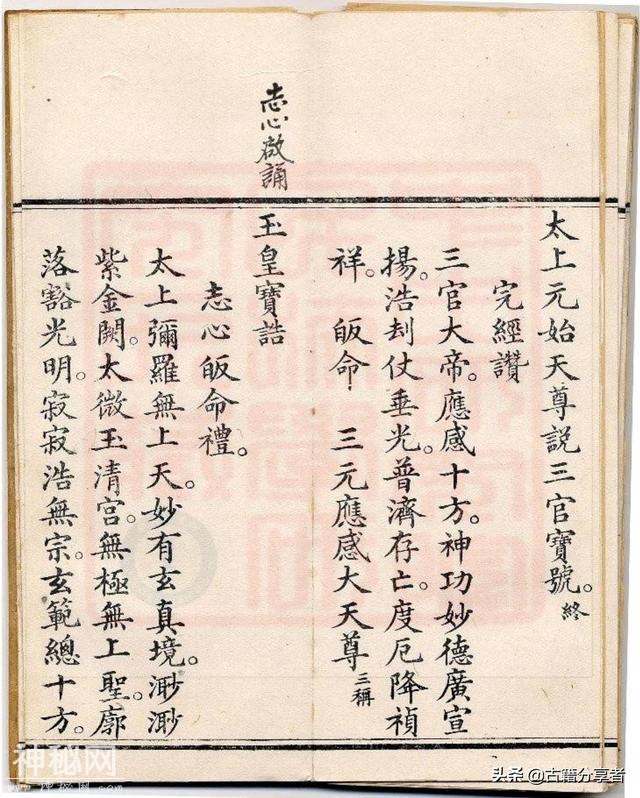 太上元始天尊説三官寶號。終
完經讚
三官大帝。應感十方。神功妙德廣宣
揚。浩刦仗垂光。普濟存亡。度厄降禎
祥。皈命 三元應感大天尊三稱
志心啟誦
玉皇寶誥
志心皈命禮。
太上彌羅無上天。妙有玄真境。渺渺
紫金闕。太微玉清宮。無極無上聖。廓
落豁光明。寂寂浩無宗。玄範總十方。
神秘网
头条 @古籍分享者